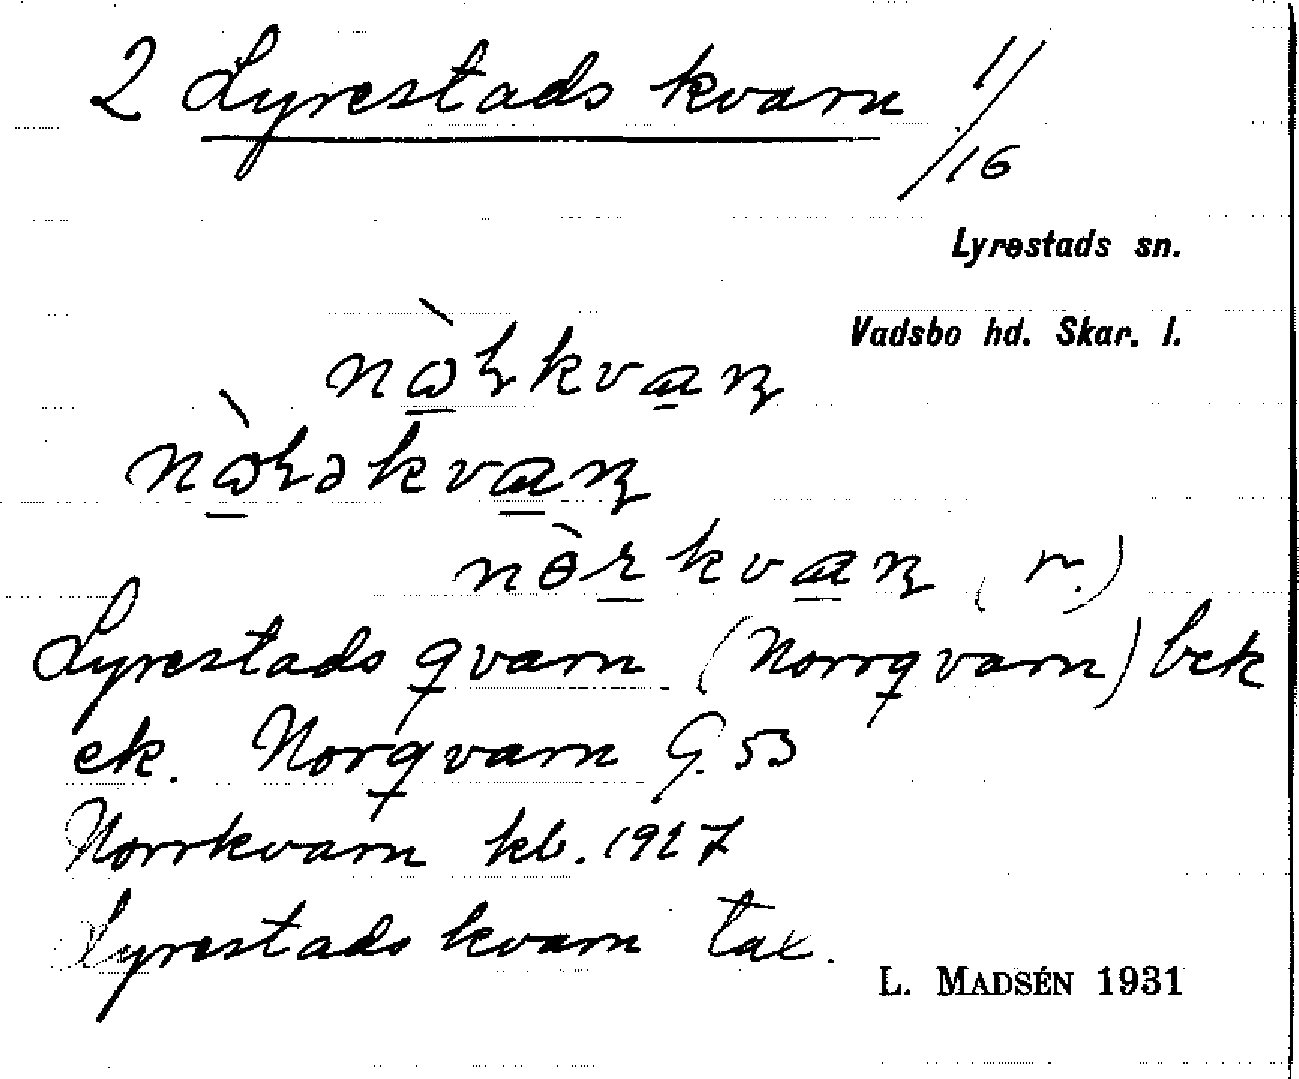 2 Lyrestads kvarn 1/16
Lyrestads sn.
Vadsbo hd. Skar. l.
Lyrestads qvarn (Norrqvarn) bek
ek. Norqvarn G. 53
Norrkvarn kb. 1927
Lyrestads kvarn tax.
L. MADSÉN 1931